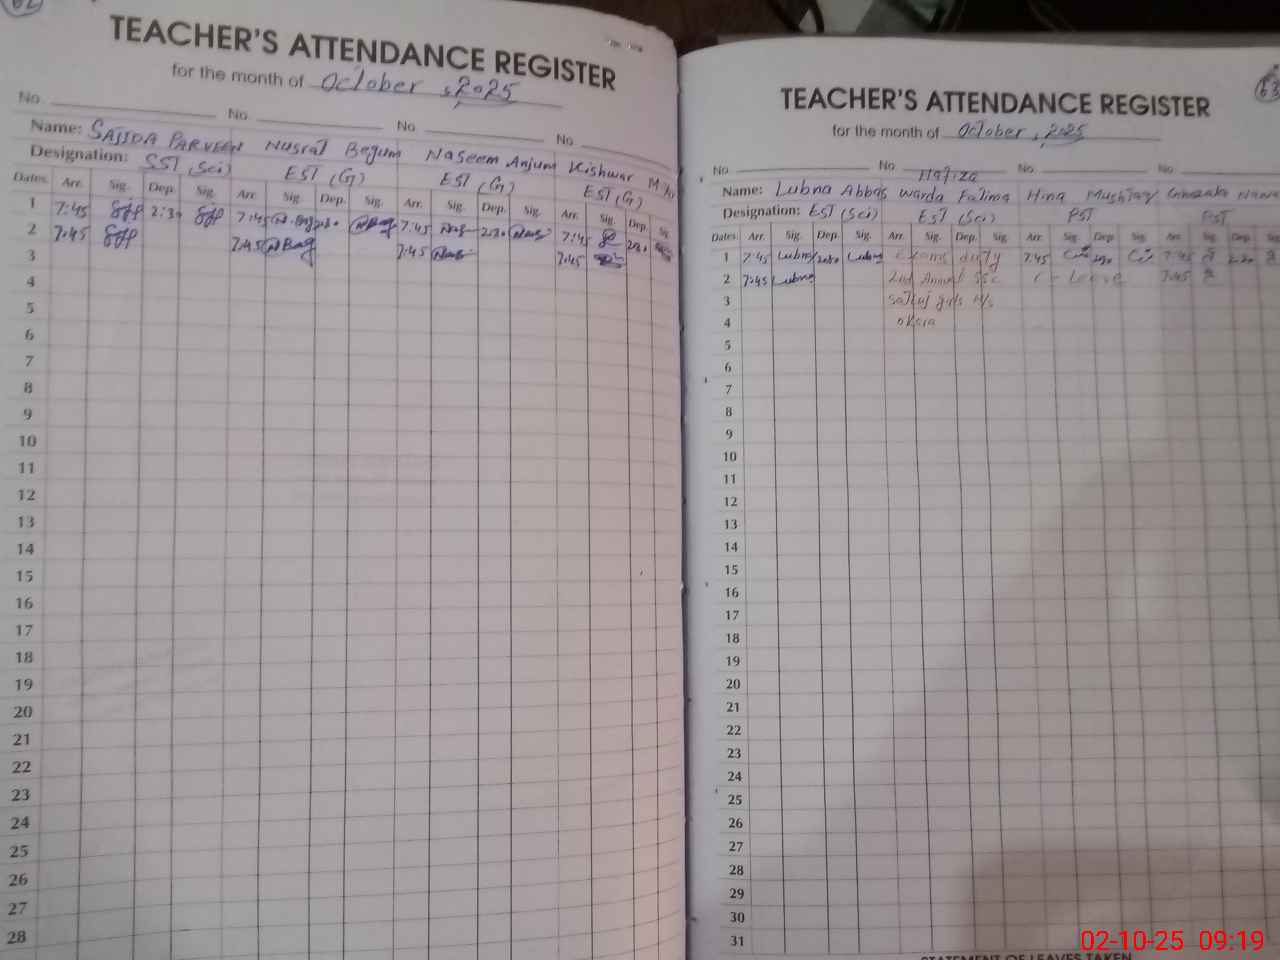 62
TEACHER'S ATTENDANCE REGISTER
for the month of October, 2025
No. No. No. No.
Name: SAJJDA PARVEEN Nusrat Begum Naseem Anjum Kishwar
Designation: SST (Sci) EST (G) EST (G) EST (G)
Dates Arr. Sig. Dep. Sig. Arr. Sig. Dep. Sig. Arr. Sig. Dep. Sig. Arr. Sig. Dep. Sig.
1 7:45 2:30 7:45 2:30 7:45 2:30 7:45 2:30
2 7:45 7:45 7:45 7:45
3
4
5
6
7
8
9
10
11
12
13
14
15
16
17
18
19
20
21
22
23
24
25
26
27
28
63
TEACHER'S ATTENDANCE REGISTER
for the month of October, 2025
No. No. No. No.
Hafiza
Name: Lubna Abbas Warda Fatima Hina Mushtaq
Designation: EST (Sci) EST (Sci) PST PST
Dates Arr. Sig. Dep. Sig. Arr. Sig. Dep. Sig. Arr. Sig. Dep. Sig. Arr. Sig. Dep. Sig.
1 7:45 Lubna 2:30 Lubna Exams duty 7:45 2:30 7:45 2:30
2 7:45 Lubna 2nd Annual SSC C-Leave 7:45
3 girls H/S
4
5
6
7
8
9
10
11
12
13
14
15
16
17
18
19
20
21
22
23
24
25
26
27
28
29
30
31
STATEMENT OF LEAVES TAKEN
02-10-25 09:19